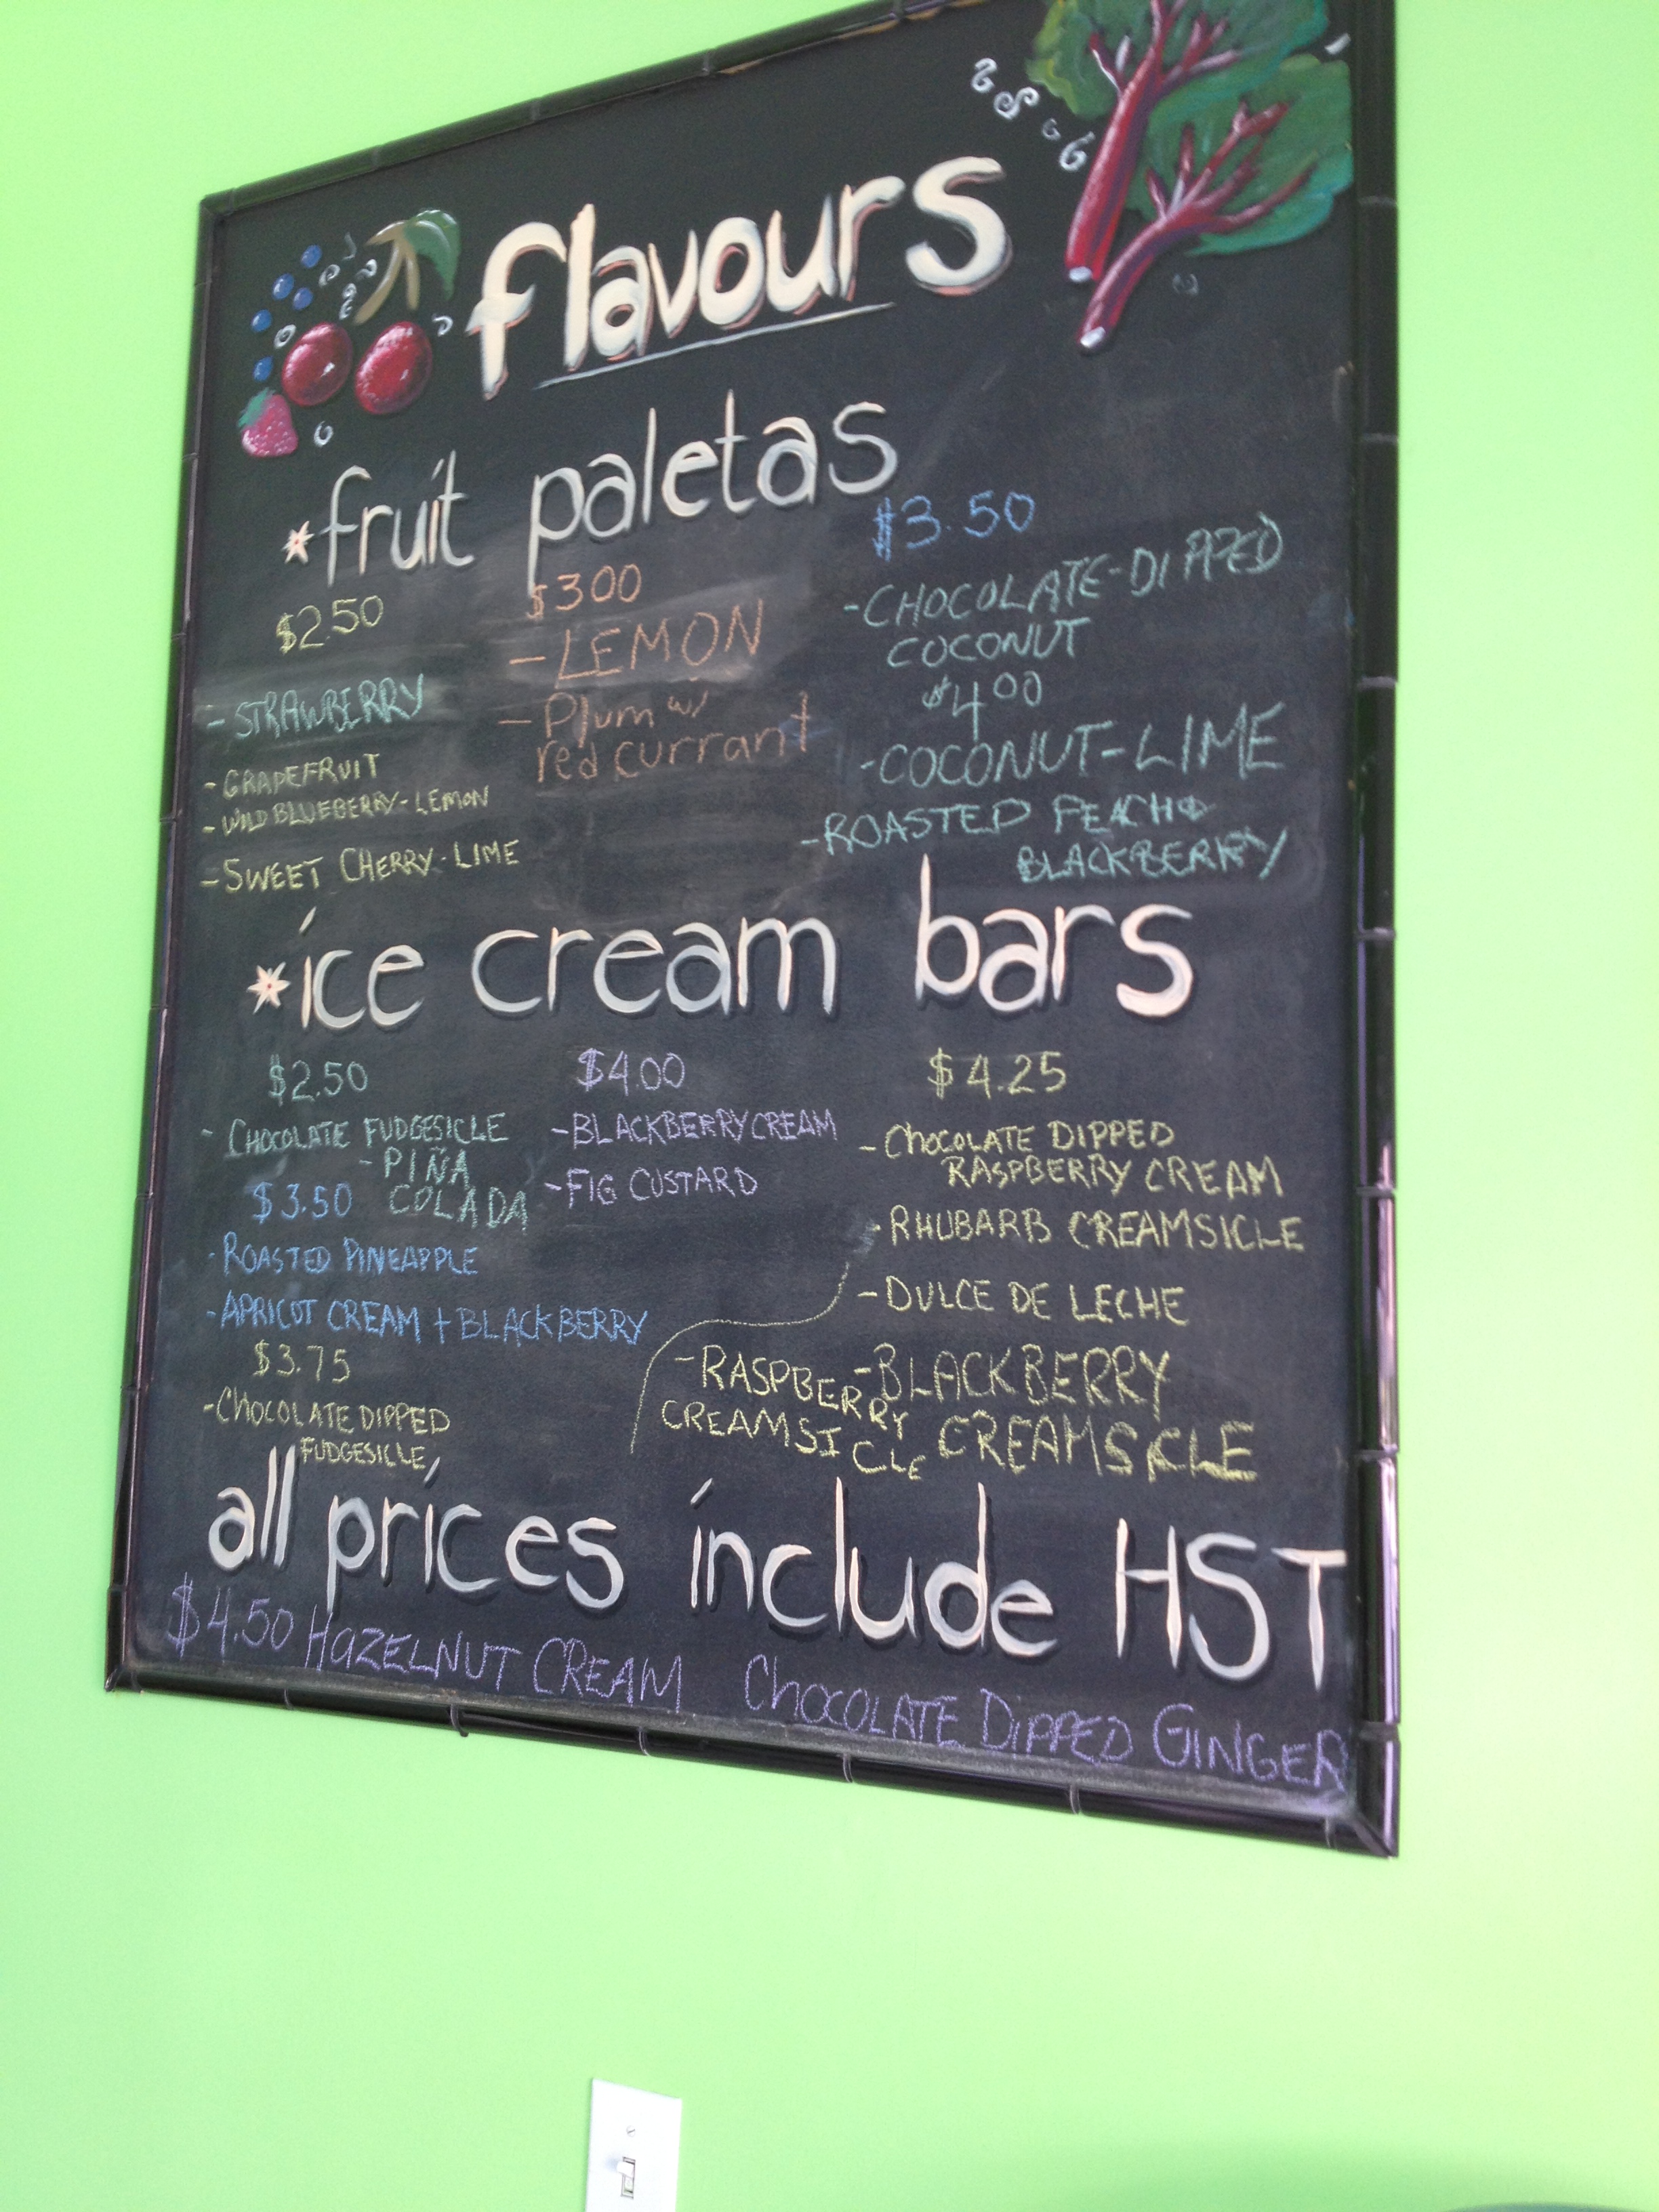 flavours
*fruit paletas
$2.50
- STRAWBERRY
- GRAPEFRUIT
- WILD BLUEBERRY-LEMON
- SWEET CHERRY-LIME
$300
- LEMON
- Plum w/
red currant
$3.50
- CHOCOLATE-DIPPED
COCONUT
$4 00
- COCONUT-LIME
- ROASTED PEACH &
BLACKBERRY
*ice cream bars
$2.50
- CHOCOLATE FUDGESICLE
- PIÑA
COLADA
$3.50
- ROASTED PINEAPPLE
- APRICOT CREAM + BLACKBERRY
$3.75
- CHOCOLATE DIPPED
FUDGESICLE
$4.00
- BLACKBERRY CREAM
- FIG CUSTARD
$4.25
- CHOCOLATE DIPPED
RASPBERRY CREAM
- RHUBARB CREAMSICLE
- DULCE DE LECHE
- RASPBERRY
CREAMSICLE
- BLACKBERRY
CREAMSICLE
all prices include HST
$4.50 HAZELNUT CREAM CHOCOLATE DIPPED GINGER